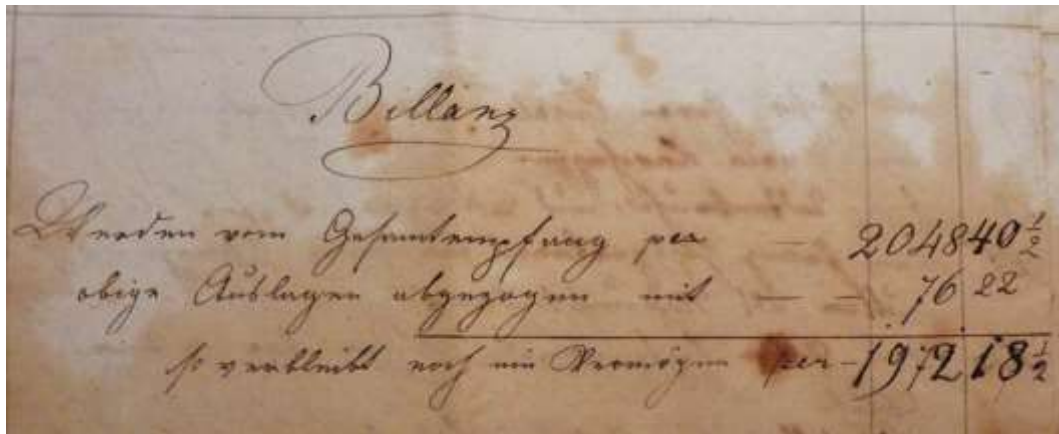 Billanz
Werden vom Gesamtempfang per — 2048 40 ½
obige Auslagen abgezogen mit — — 76 22
so verbleibt noch ein Vermögen per - 1972 18 ½